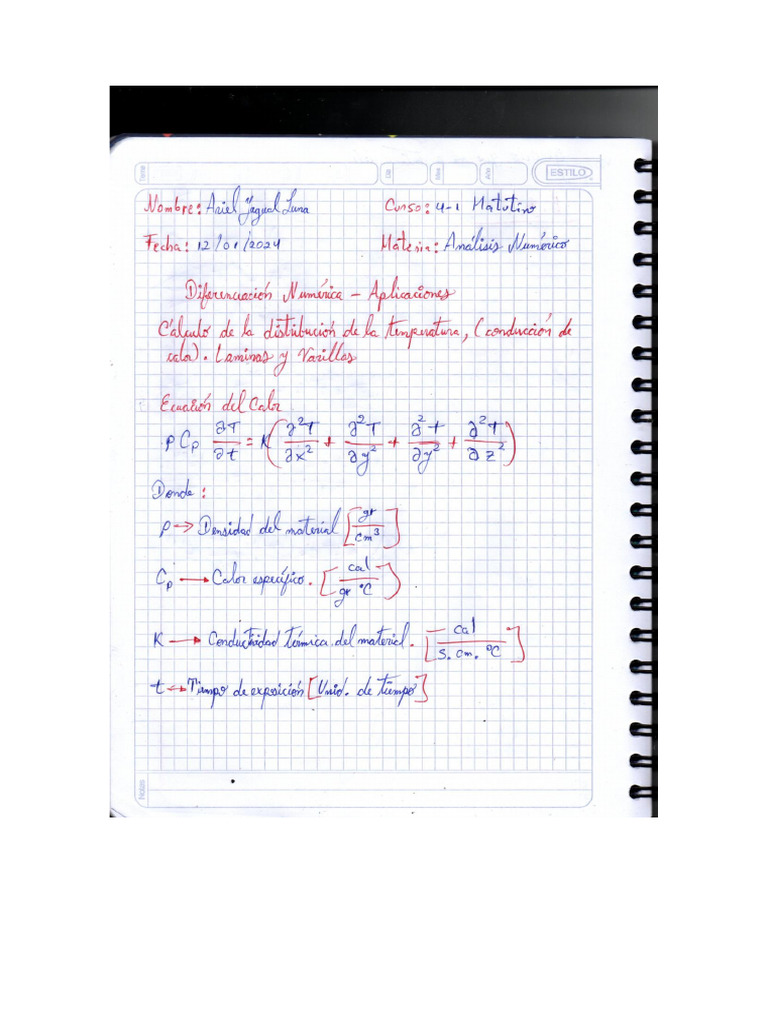 Tema Día Mes Año ESTILO
Nombre: Ariel Yagual Luna Curso: 4-1 Matutino
Fecha: 12/01/2024 Materia: Análisis Numérico
Diferenciación Numérica – Aplicaciones
Cálculo de la distribución de la temperatura, (conducción de
calor). Laminas y Varillas
Ecuación del Calor
ρ Cp ∂T/∂t = K(∂²T/∂x² + ∂²T/∂y² + ∂²t/∂y² + ∂²T/∂z²)
Donde:
ρ → Densidad del material [gr/cm³]
Cp → Calor específico. [cal/gr °C)
K → Conductividad térmica del material. [cal/s. cm. °C]
t → Tiempo de exposición [Unid. de tiempo]
Notas